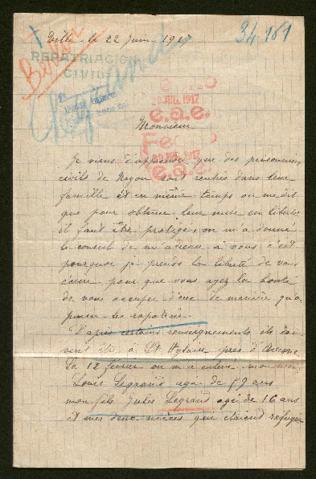 Lille le 22 juin 1917
34,161
REPATRIACION
CIVIL
JUIL. 1917
e.a.e.
JUIL. 1917
e.a.e.
Monsieur
Je viens d'apprendre que des prisonniers
civils de Noyon sont rentrés dans leur
famille Et en même temps on me dit
que pour obtenir leur mise en liberté
il faut être protégé, on m'a donné
le conseil de m' à vous c'est
pourquoi je prends la liberté de vous
écrire pour que vous ayez la bonté
de vous occuper d'eux de manière qu'à
D'après certains renseignements ils
à St Hylaire près d'Avesnes
Le 12 février on m'a enlevé mon mari
Louis Legrand agé de 59 ans
mon fils Jules Legrand agé de 16 ans
et mes deux nièces qui étaient